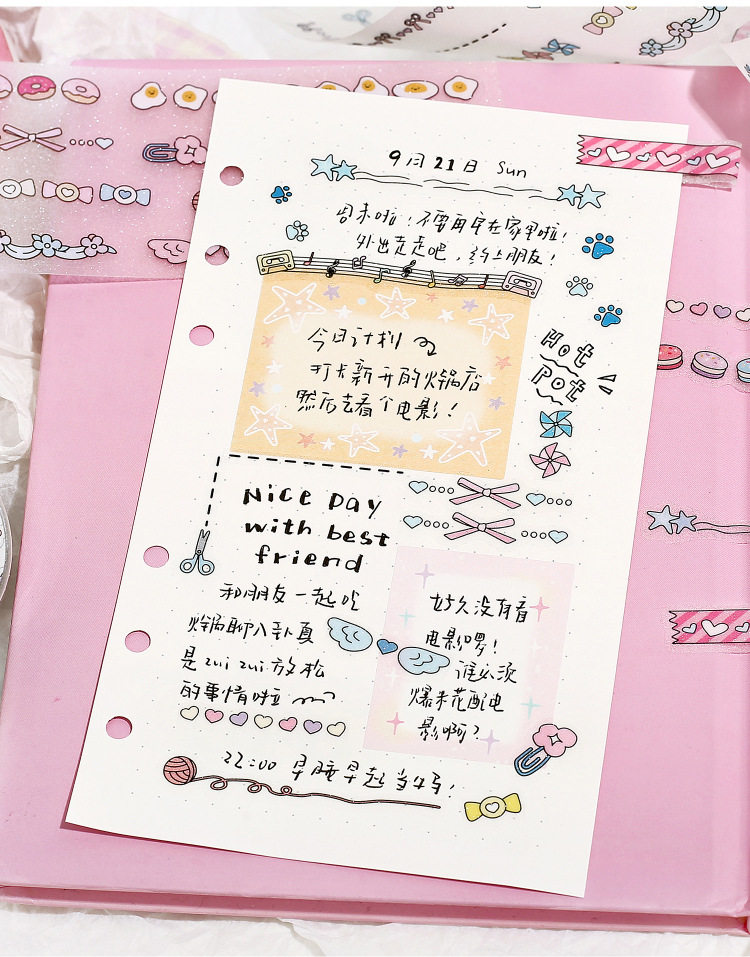 9月21日 Sun
周末啦!不要再呆在家里啦!
外出走走吧,约上朋友!
今日计划
打卡新开的火锅店
然后去看个电影!
Hot
Pot
Nice Day
with best
friend
和朋友一起吃
火锅聊八卦真
是zui zui放松
的事情啦
好久没有看
电影啰!
谁必须
爆米花配电
影啊?
22:00 早睡早起当牛马!